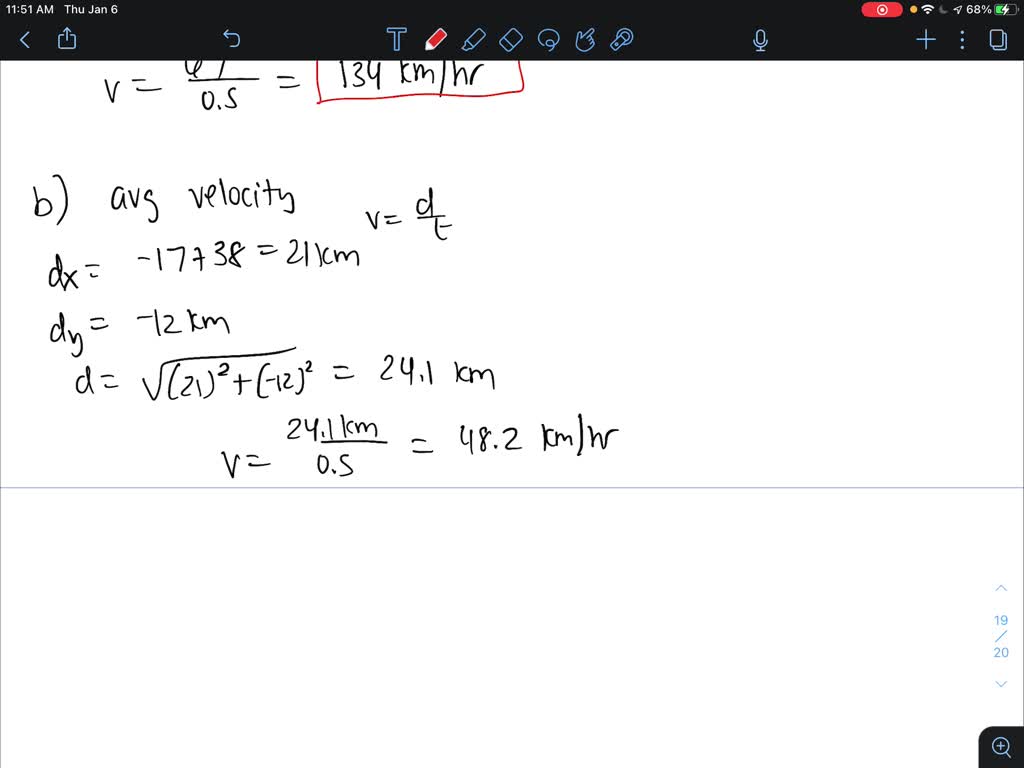 11:51 AM Thu Jan 6
68%
v = /0.5 = 134 km/hr
b) avg velocity
v = d/t
dx = -17+38 = 21 km
dy = -12 km
d = √(21)²+(-12)² = 24.1 km
v = 24.1 km/0.5 = 48.2 km/hr
19
/
20